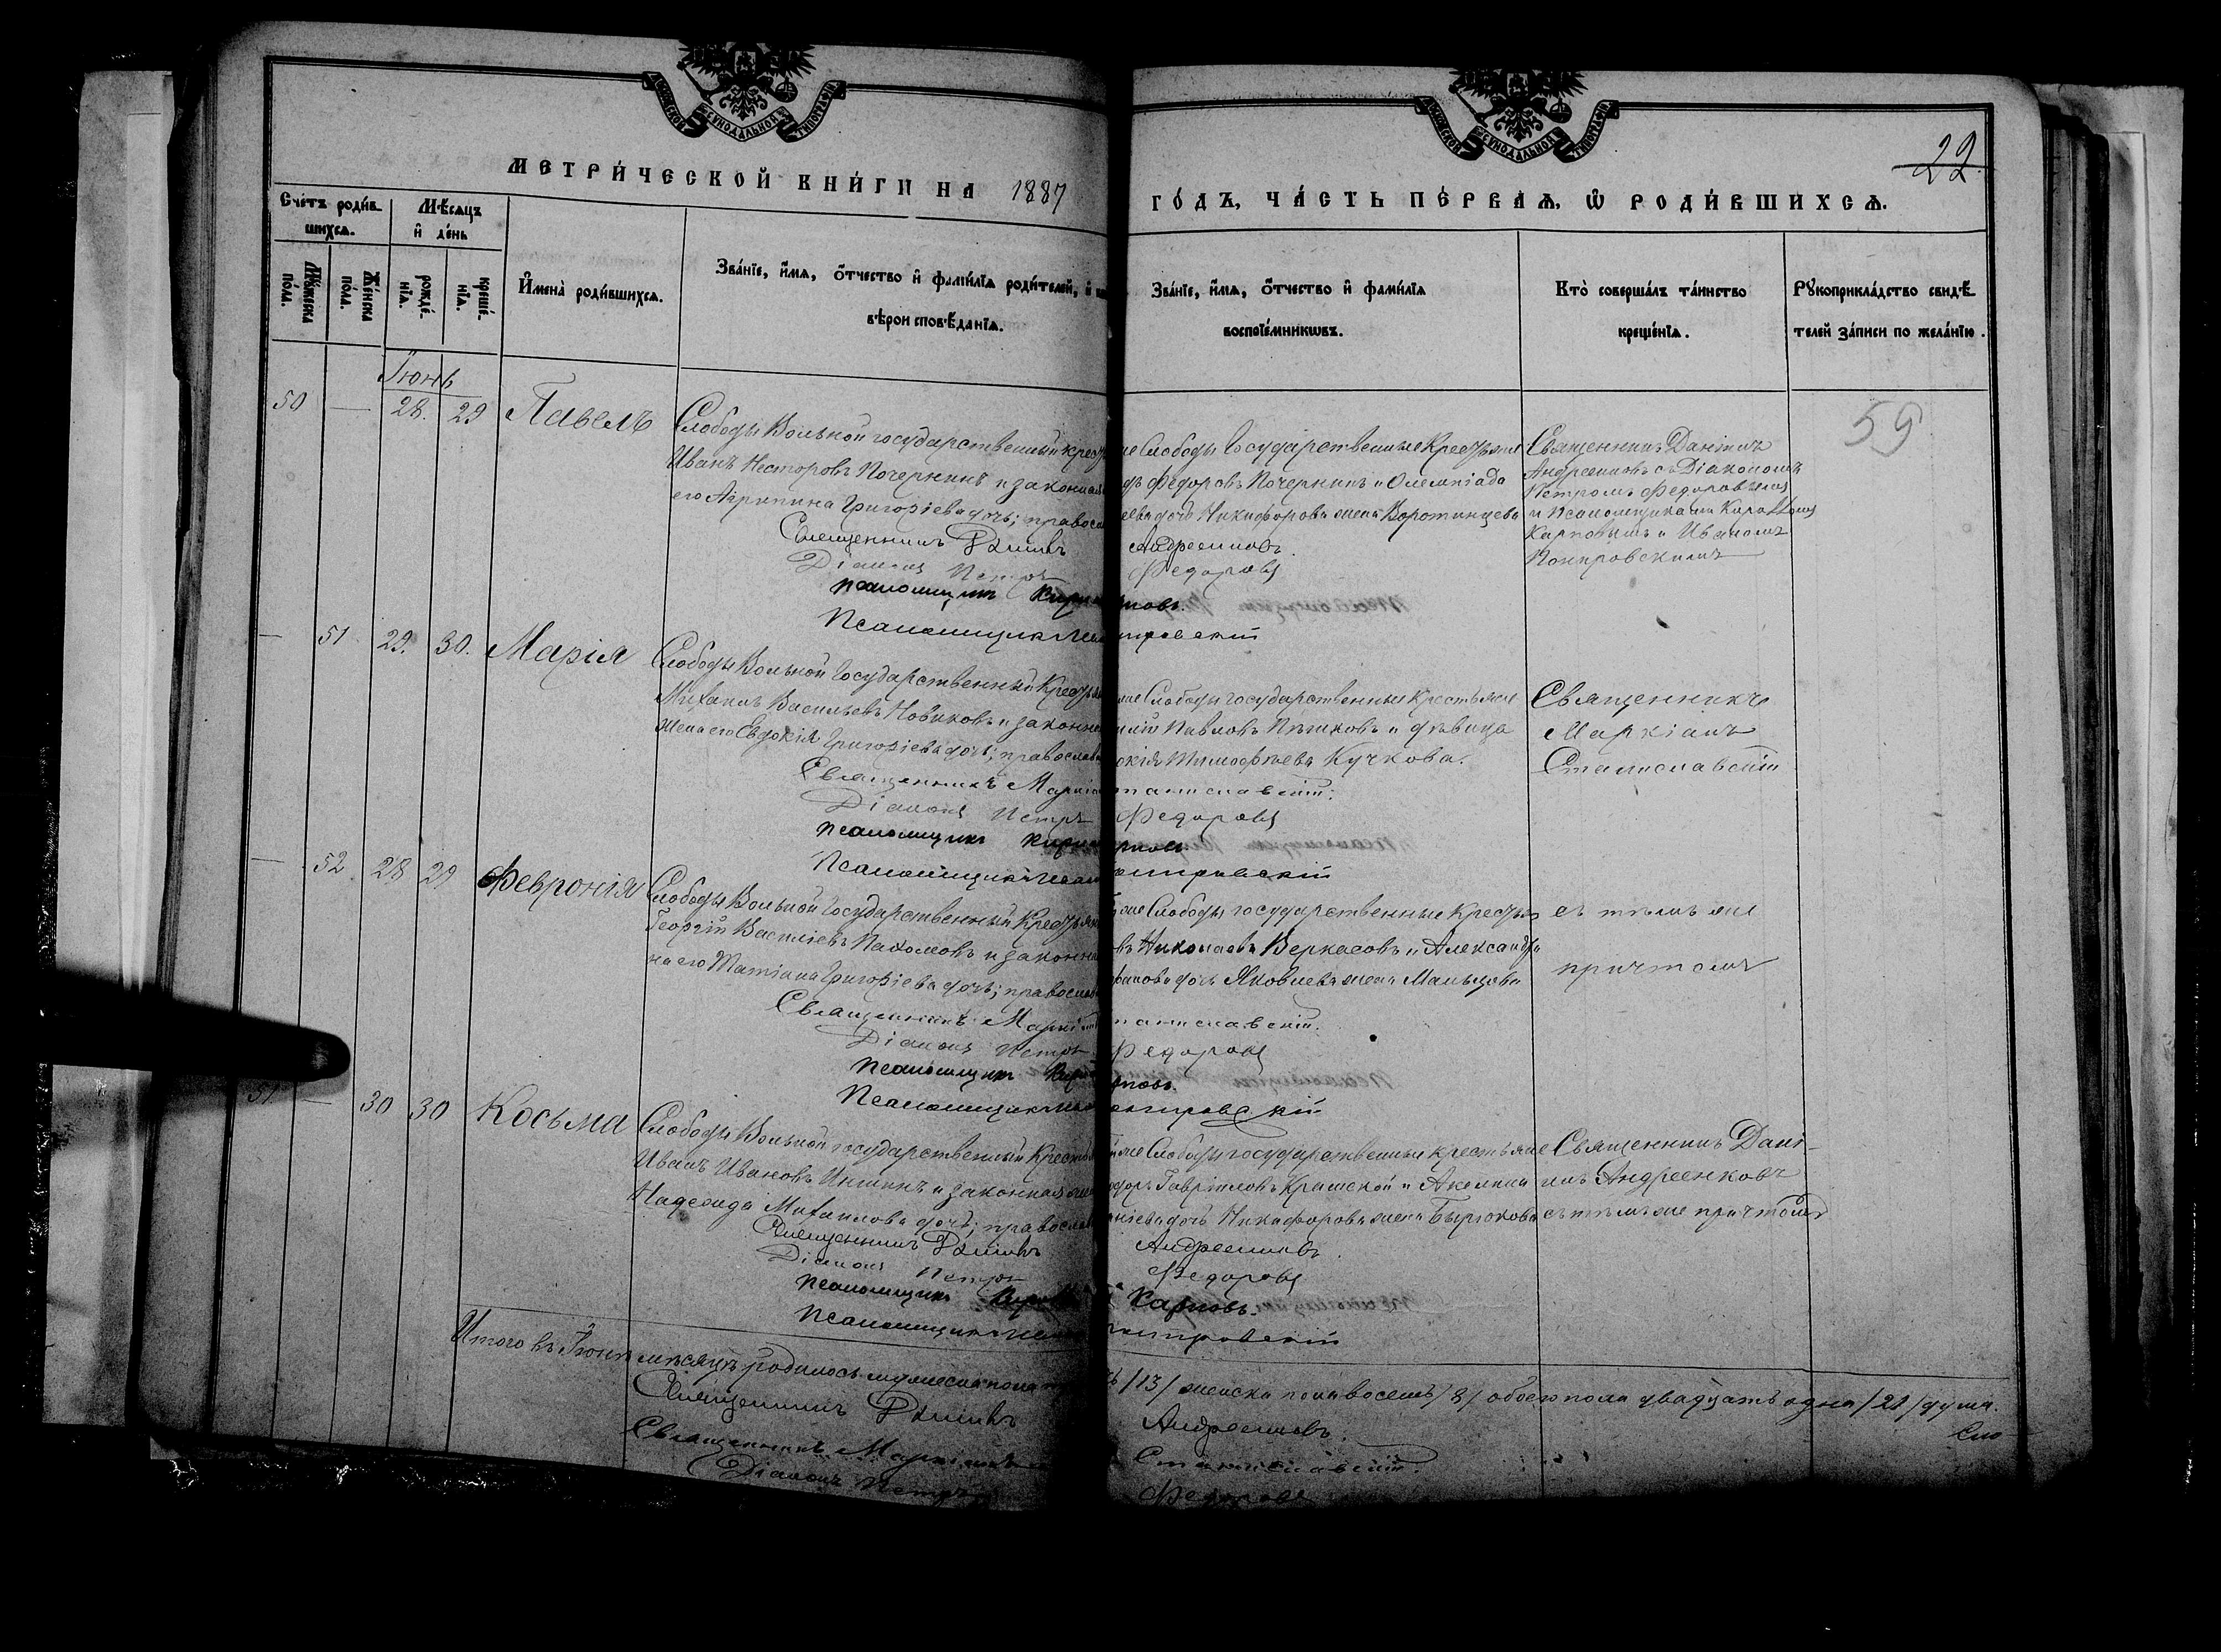 МЕТРИ́ЧЕСКОЙ КНИ́ГИ НА 1887
ГО́ДЪ, ЧА́СТЬ ПЕ́РВАѦ, Ѡ РОДИ́ВШИХСѦ.
22
59
Сче́тъ роди́в
шихсѧ.
Мѣ́сѧцъ
и҆ де́нь
Мꙋ́жеска по́ла.
Же́нска по́ла.
рожде́нїѧ.
креще́нїѧ.
И҆мена̀ роди́вшихсѧ.
Зва́нїе, и҆́мѧ, ѻ҆́тчество и҆ фамѝлїѧ роди́телей, и҆
вѣроисповѣ́данїѧ.
Зва́нїе, и҆́мѧ, ѻ҆́тчество и҆ фамѝлїѧ
воспрїе́мникѡвъ.
Кто̀ соверша́лъ та́инство
креще́нїѧ.
Рꙋкоприкла́дство свидѣ́
телей за́писи по жела́нїю.
Іюнь
50 — 28. 29 Павелъ
Слободы Вольной государственный крест
Иванъ Несторовъ Почеркинъ и законная
его Агрипина Григоріева дочь; правосл
Священникъ Данiилъ
Діаконъ Петръ
Псаломщикъ Кири
Псаломщикъ
же Слободы государственные Крестьяне
Федоровъ Почеркинъ и Олимпіада
дочь Никифорова жена Воротынцева
Андреенковъ.
Федоровъ
повъ.
кировскій
Священникъ Даніилъ
Андреенковъ съ Діакономъ
Петромъ Федоровымъ
и Псаломщиками Кириллом
Карповымъ и Иваномъ
Покировскимъ
— 51 29. 30. Марія
Слободы Вольной Государственный Крестья
Михаилъ Васильевъ Новиковъ и законна
жена его Евдокія Григоріева дочь; православ
Священникъ Маркіа
Діаконъ Петръ
Псаломщикъ Кири
Псаломщикъ
же Слободы государственные Крестьяне
Павловъ Пѣшковъ и дѣвица
окія Тимофѣева Кучкова.
таниславскій.
Федоровъ
рповъ
кировскій
Священникъ
Маркіанъ
Станиславскій
— 52. 28 29 Февронія
Слободы Вольной Государственный Крестьян
Георгій Василіевъ Пахомовъ и законна
на его Татіана Григоріева дочь; православ
Священникъ Маркіа
Діаконъ Петръ
Псаломщикъ Кири
Псаломщикъ
же Слободы государственные Крестья
въ Николаевъ Веркасовъ и Александра
дочь Яковлева жена Мальцева
таниславскій.
Федоровъ
повъ.
кировскій
съ тѣмъ же
причтомъ
51 — 30 30 Косьма
Слободы Вольной государственный Крестья
Иванъ Ивановъ Иншинъ и законная жен
Надежда Михаилова дочь; православ
Священникъ Данiилъ
Діаконъ Петръ
Псаломщикъ Кири
Псаломщикъ
же Слободы государственные крестьяне
Гавріиловъ Крамской и Акелина
дочь Никифорова жена Бирюкова
Андреенковъ.
Федоровъ
Карповъ.
кировскій
Священникъ Дані-
илъ Андреенковъ
съ тѣмъ же причтомъ
Итого въ Іюнѣ мѣсяцѣ родилось мужеска пола
/13/ женска пола восемь /8/ обоего пола двадцать одна /21/ душа.
Священникъ Данiилъ Андреенковъ.
Священникъ Маркіанъ Станиславскій.
Діаконъ Петръ Федоровъ